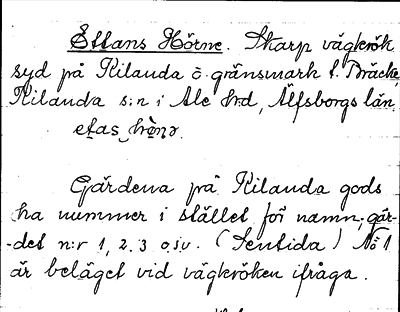 Ettans Hörne. Skarp vägkrök
syd på Kilanda ö gränsmark t. Bräcke,
Kilanda s:n i Ale hrd, Älfsborgs län.
etas hènə.
Gärdena på Kilanda gods
ha nummer i stället för namn; gär-
-det n:r 1, 2. 3 o,s,v. (Sentida) No 1
är beläget vid vägkröken ifråga.